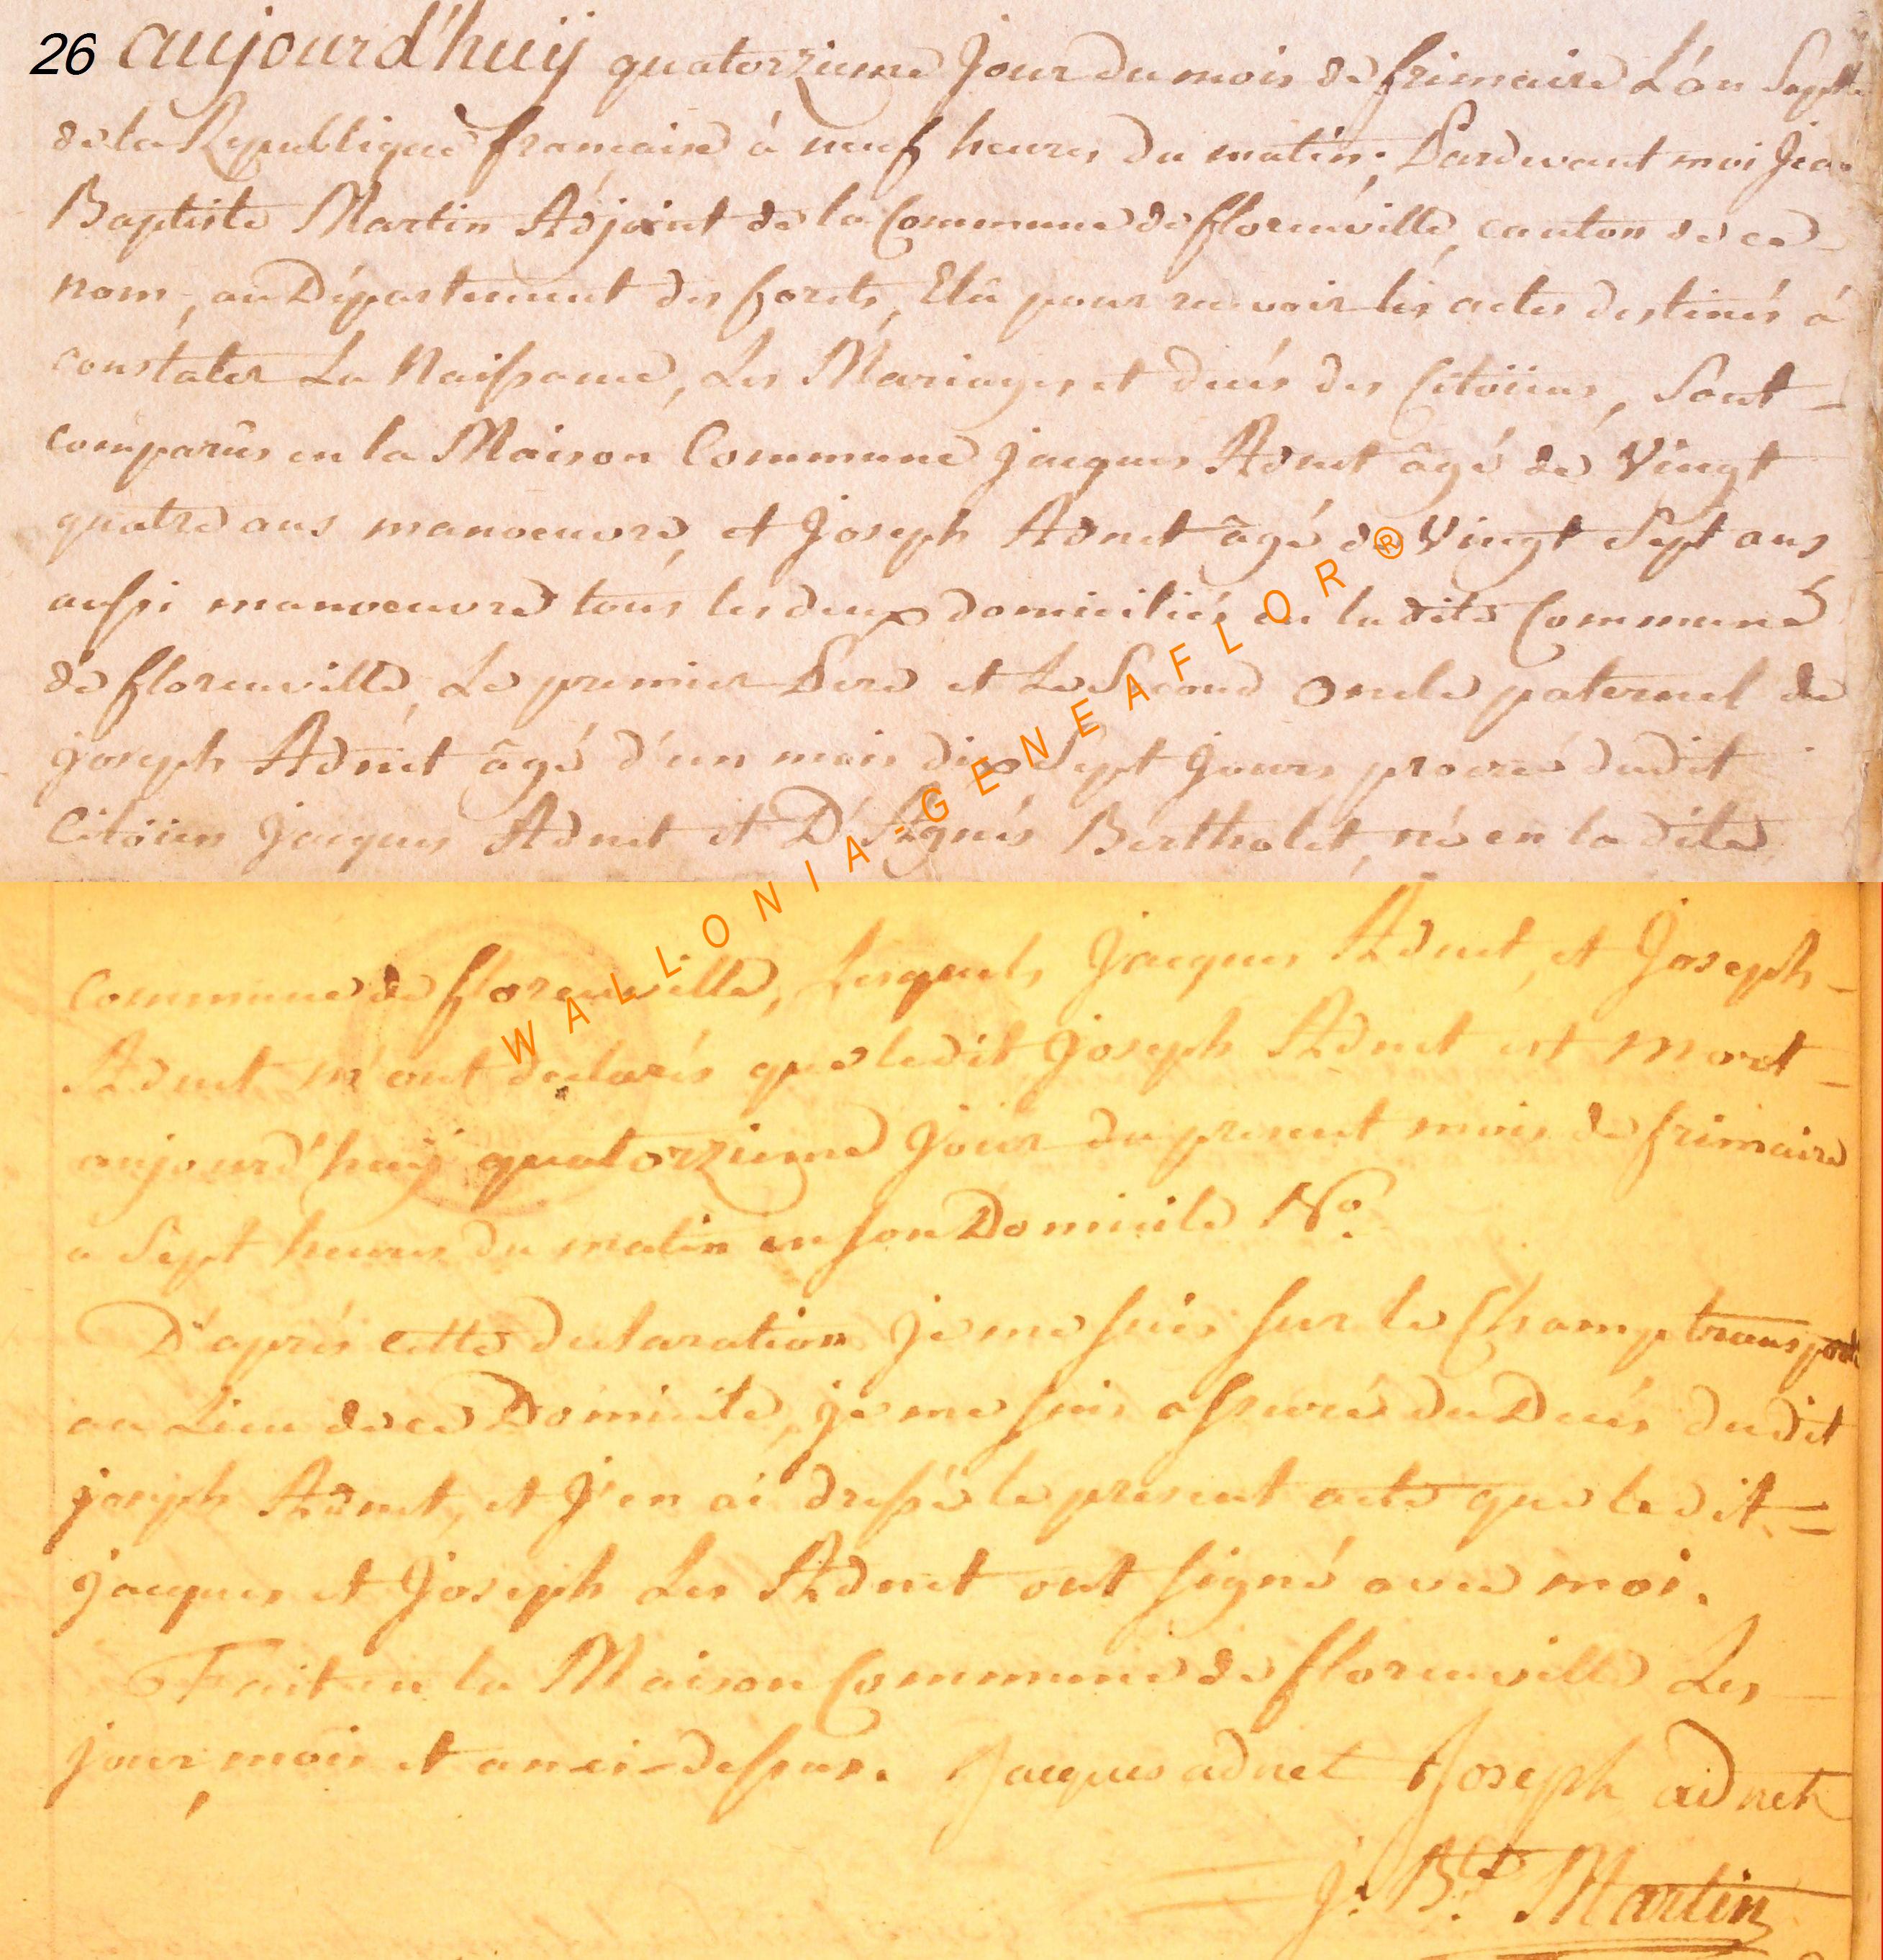 26 aujourd'huÿ quatorzieme Jour du mois de frimaire L'an Sept
de la Republique francaise à neuf heures du matin, Pardevant moi Jean
Baptiste Martin Adjoint de la Commune de fflorenville, canton de ce
nom, au Département des forets, Elû pour recevoir les actes destinés à
constater La Naissance, Les Mariages et decés des Citöiens, Sont
comparûs en la Maison Commune Jacques Adnet âgé de Vingt
quatre ans manoeuvre, et Joseph Adnet âgé de Vingt Sept ans
aussi manoeuvre tous les deux domiciliés en la dite Commune
de fflorenville, Le premier Pere et Le Second oncle paternel de
Joseph Adnet âgé d'un mois dix Sept Jours procreé dudit
Citöien Jacques Adnet et D'Agnés Bertholet, né en la dite
Commune de fflorenville, Lesquels Jacques Adnet, et Joseph
Adnet m'ont declarés que ledit Joseph Adnet est mort
aujourd'huÿ quatorzieme Jour du present mois de frimaire
a Sept heures du matin en son Domicile N°.
D'aprés cette declaration Je me suis sur le Champ transporté
au Lieu de ce Domicile, je me suis assuré du Decés dudit
joseph Adnet, et J'en ai dressé le present acte que ledit
Jacques et Joseph Les Adnet ont signé avec moi.
Fait en la Maison Commune de fflorenville Les
jour, mois et an ci-dessus. Jacques adnet Joseph adnet
J. Bte. Martin
WALLONIA-GENEAFLOR®